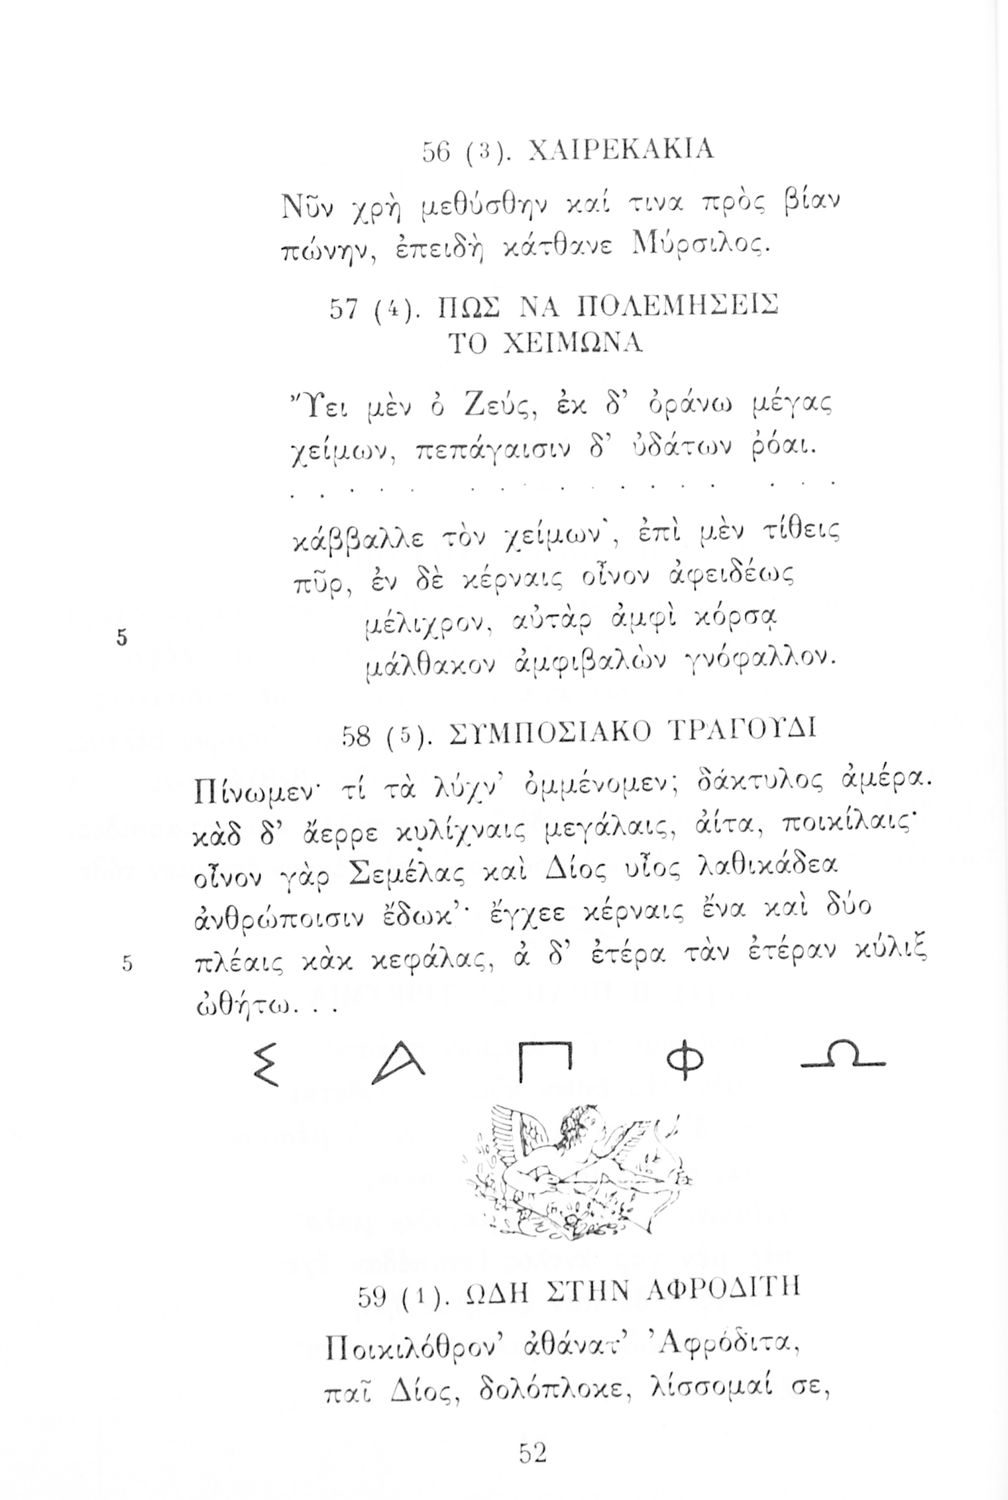 56 (3). ΧΑΙΡΕΚΑΚΙΑ
Νῦν χρὴ μεθύσθην καί τινα πρὸς βίαν
πώνην, ἐπειδὴ κάτθανε Μύρσιλος.
57 (4). ΠΩΣ ΝΑ ΠΟΛΕΜΗΣΕΙΣ
ΤΟ ΧΕΙΜΩΝΑ
Υ̓́ει μὲν ὀ Ζεύς, ἐκ δ’ ὀράνω μέγας
χείμων, πεπάγαισιν δ’ ὐδάτων ῥόαι.
. . . . . . . . . . . . . . . . . .
κάββαλλε τὸν χείμων’, ἐπὶ μὲν τίθεις
πῦρ, ἐν δὲ κέρναις οἶνον ἀφειδέως
μέλιχρον, αὐτὰρ ἀμφὶ κόρσᾳ
5
μάλθακον ἀμφιβαλὼν γνόφαλλον.
58 (5). ΣΥΜΠΟΣΙΑΚΟ ΤΡΑΓΟΥΔΙ
Πίνωμεν· τί τὰ λύχν’ ὀμμένομεν; δάκτυλος ἀμέρα.
κὰδ δ’ ἄερρε κυλίχναις μεγάλαις, ἀίτα, ποικίλαις·
οἶνον γὰρ Σεμέλας καὶ Δίος υἶος λαθικάδεα
ἀνθρώποισιν ἔδωκ’· ἔγχεε κέρναις ἔνα καὶ δύο
5 πλέαις κὰκ κεφάλας, ἀ δ’ ἐτέρα τὰν ἐτέραν κύλιξ
ὠθήτω. . .
ΣΑΠΦΩ
59 (1). ΩΔΗ ΣΤΗΝ ΑΦΡΟΔΙΤΗ
Ποικιλόθρον’ ἀθάνατ’ Ἀφρόδιτα,
παῖ Δίος, δολόπλοκε, λίσσομαί σε,
52